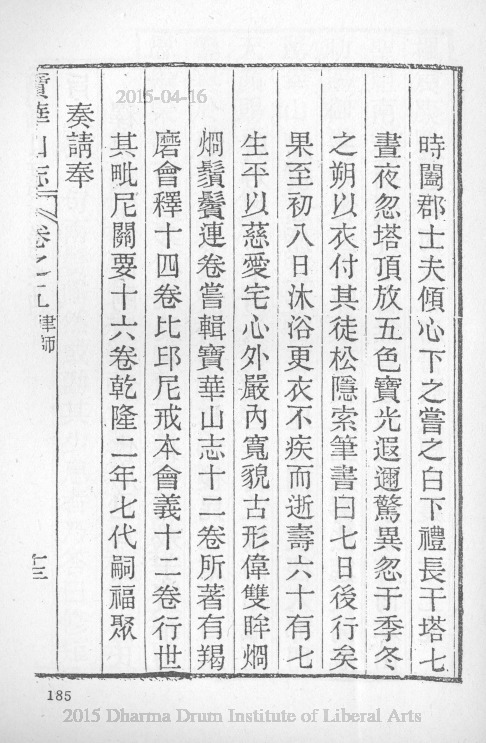 時闔郡士夫傾心下之嘗之白下禮長干塔七
晝夜忽塔頂放五色寶光遐邇驚異忽于季冬
之朔以衣付其徒松隱索筆書曰七日後行矣
果至初八日沐浴更衣不疾而逝壽六十有七
生平以慈愛宅心外嚴內寬貌古形偉雙眸烱
烱鬚鬢連卷嘗輯寶華山志十二卷所著有羯
磨會釋十四卷比邱尼戒本會義十二卷行世
其毗尼關要十六卷乾隆二年七代嗣福聚
奏請奉
寶華山志 卷之五 律師 十三
2015-04-16
185
2015 Dharma Drum Institute of Liberal Arts